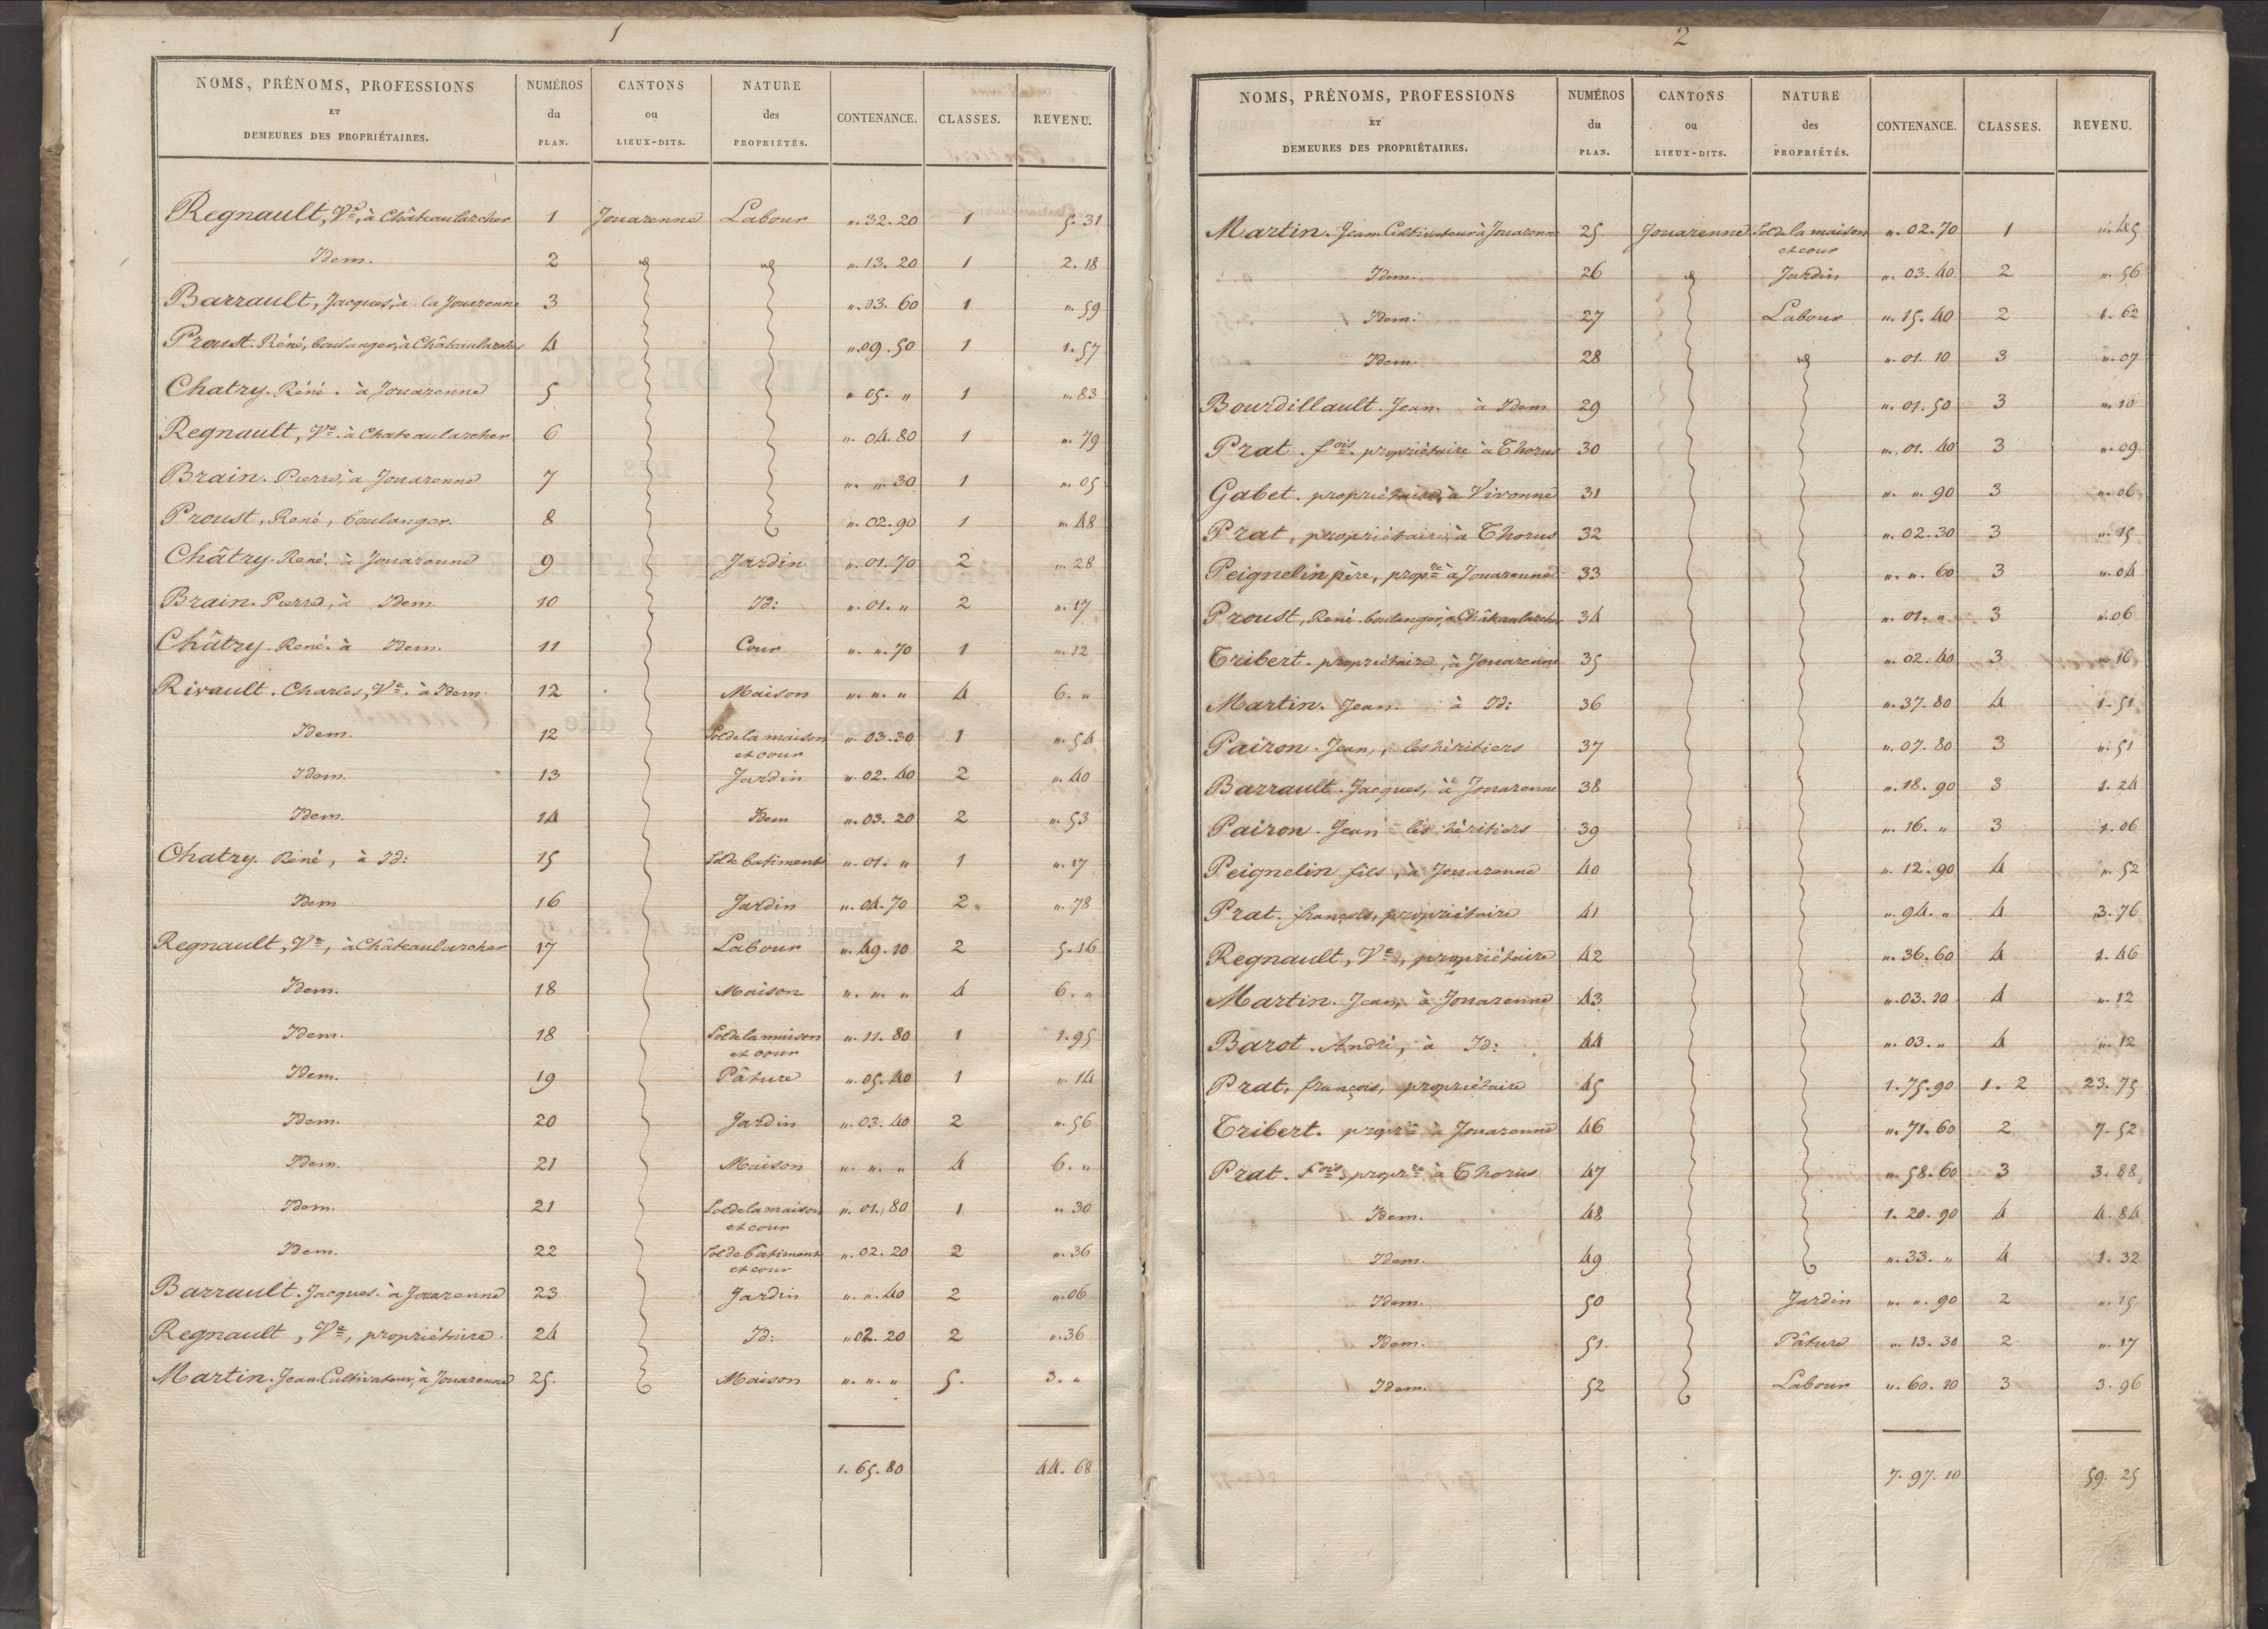 1
NOMS, PRÉNOMS, PROFESSIONS ET DEMEURES DES PROPRIÉTAIRES. NUMÉROS du PLAN. CANTONS ou LIEUX-DITS. NATURE des PROPRIÉTÉS. CONTENANCE. CLASSES. REVENU.
Regnault, Ve, à Châteaularcher 1 Jouarenne Labour ". 32. 20 1 5. 31
Idem. 2 id id ". 13. 20 1 2. 18
Barrault, Jacques, à la Jouarenne 3 ". 03. 60 1 ". 59
Proust. Réné, boulanger, à Châteaularcher 4 ". 09. 50 1 1. 57
Chatry. Réné. à Jouarenne 5 ". 05. " 1 ". 83
Regnault, Ve. à Chateaularcher 6 ". 04. 80 1 ". 79
Brain. Pierre, à Jouarenne 7 ". ". 30 1 ". 05
Proust, René, boulanger. 8 ". 02. 90 1 ". 48
Châtry. René. à Jouarenne 9 Jardin ". 01. 70 2 ". 28
Brain. Pierre, à Idem. 10 Id: ". 01. " 2 ". 17
Châtry. René. à Idem. 11 Cour ". ". 70 1 ". 12
Rivault. Charles, Ve. à Idem. 12 Maison ". ". " 4 6. "
Idem. 12 Sol de la maison et cour ". 03. 30 1 ". 54
Idem. 13 Jardin ". 02. 40 2 ". 40
Idem. 14 Idem ". 03. 20 2 ". 53
Chatry. Réné, à Id: 15 Sol de batiments ". 01. " 1 ". 17
Idem 16 Jardin ". 04. 70 2. ". 78
Regnault, Ve, à Châteaularcher 17 Labour ". 49. 10 2 5. 16
Idem. 18 Maison ". ". " 4 6. "
Idem. 18 Sol de la maison et cour ". 11. 80 1 1. 95
Idem. 19 Pâture ". 05. 40 1 ". 14
Idem. 20 Jardin ". 03. 40 2 ". 56
Idem. 21 Maison ". ". " 4 6. "
Idem. 21 Sol de la maison et cour ". 01. 80 1 ". 30
Idem. 22 Sol de batiments et cour ". 02. 20 2 ". 36
Barrault. Jacques. à Jouarenne 23 Jardin ". ". 40 2 ". 06
Regnault, Ve, propriétaire. 24 Id: ". 02. 20 2 ". 36
Martin. Jean Cultivateur, à Jouarenne 25. Maison ". ". " 5. 3. "
1. 65. 80 44. 68
2
NOMS, PRÉNOMS, PROFESSIONS ET DEMEURES DES PROPRIÉTAIRES. NUMÉROS du PLAN. CANTONS ou LIEUX-DITS. NATURE des PROPRIÉTÉS. CONTENANCE. CLASSES. REVENU.
Martin. Jean Cultivateur à Jouarenne 25 Jouarenne Sol de la maison et cour ". 02. 70 1 ". 45
Idem. 26 id Jardin ". 03. 40 2 ". 56
Idem. 27 Labour ". 15. 40 2 1. 62
Idem. 28 id ". 01. 10 3 ". 07
Bourdillault. Jean. à Idem 29 ". 01. 50 3 ". 10
Prat. fois. propriétaire à Thorus 30 ". 01. 40 3 ". 09
Gabet. propriétaire, à Vivonne 31 ". ". 90 3 ". 06
Prat, propriétaire, à Thorus 32 ". 02. 30 3 ". 15
Peignelin père, propre à Jouarenne 33 ". ". 60 3 ". 04
Proust, René boulanger, à Châteaularcher 34 ". 01. " 3 ". 06
Tribert. propriétaire, à Jouarenne 35 ". 02. 40 3 ". 16
Martin. Jean. à Id: 36 ". 37. 80 4 1. 51
Pairon. Jean, les héritiers 37 ". 07. 80 3 ". 51
Barrault. Jacques, à Jouarenne 38 ". 18. 90 3 1. 24
Pairon. Jean les héritiers 39 ". 16. " 3 1. 06
Peignelin fils, à Jouarenne 40 ". 12. 90 4 ". 52
Prat. françois, propriétaire 41 ". 94. " 4 3. 76
Regnault, Ve, propriétaire 42 ". 36. 60 4 1. 46
Martin. Jean, à Jouarenne 43 ". 03. 10 4 ". 12
Barot. André, à Id: 44 ". 03. " 4 ". 12
Prat, françois, propriétaire 45 1. 75. 90 1. 2 23. 75
Tribert. propre à Jouarenne 46 ". 71. 60 2 7. 52
Prat. Fois, propre à Thorus 47 ". 58. 60 3 3. 88
Idem. 48 1. 20. 90 4 4. 84
Idem. 49 ". 33. " 4 1. 32
Idem. 50 Jardin ". ". 90 2 ". 15
Idem. 51. Pâture ". 13. 30 2 ". 17
Idem. 52 Labour ". 60. 10 3 3. 96
7. 97. 10 59. 25